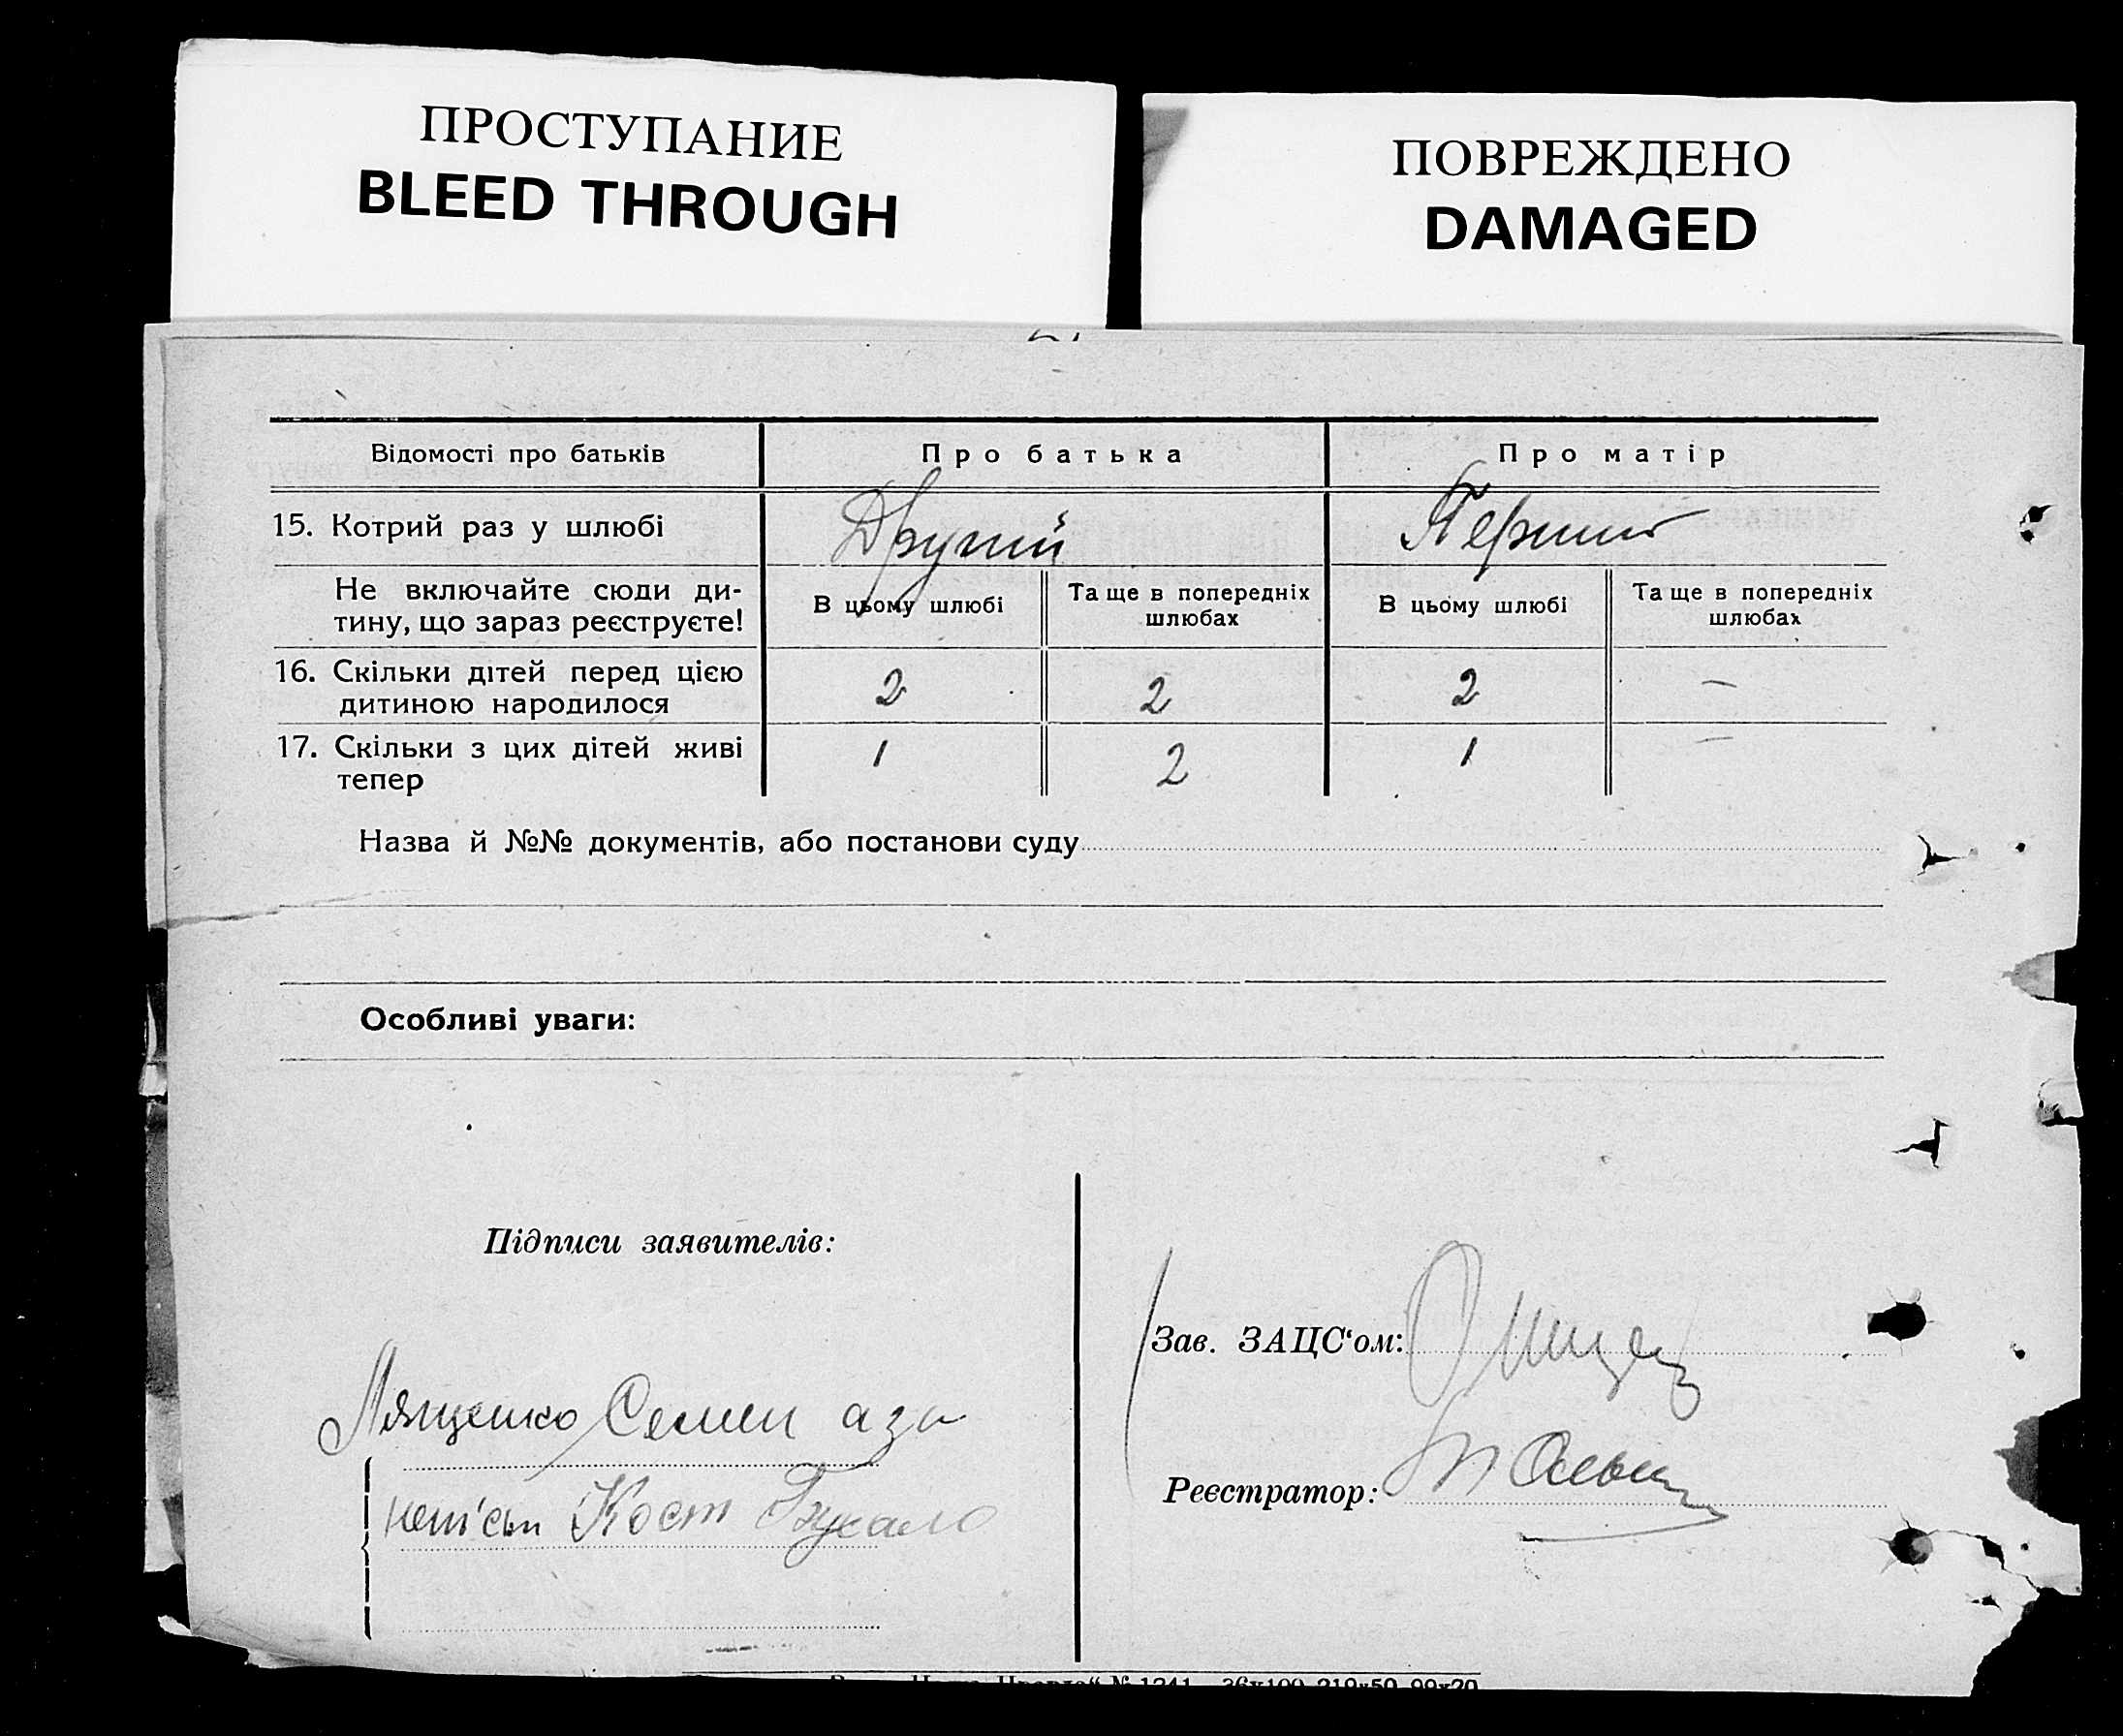 ПРОСТУПАНИЕ
BLEED THROUGH
ПОВРЕЖДЕНО
DAMAGED
Відомості про батьків
Про батька
Про матір
15. Котрий раз у шлюбі
Другий
Перший
Не включайте сюди ди-
тину, що зараз реєструєте!
В цьому шлюбі
Та ще в попередніх
шлюбах
В цьому шлюбі
Та ще в попередніх
шлюбах
16. Скільки дітей перед цією
дитиною народилося
2
2
2
—
17. Скільки з цих дітей живі
тепер
1
2
1
—
Назва й №№ документів, або постанови суду
Особливі уваги:
Підписи заявителів:
Лященко Семен а за
Кост
Зав. ЗАЦС‘ом:
Реєстратор:
№ 1241